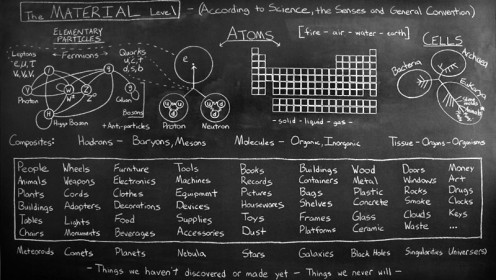 The MATERIAL Level - (According to Science, the Senses and General Convention)
ELEMENTARY PARTICLES
Leptons
e, μ, T
Fermions
Quarks
u, c, t
d, s, b
Photon
W
Z
Gluon
Higgs Boson
Bosons
+Anti-particles
ATOMS
[fire - air - water - earth]
e
u u d
u d d
Proton
Neutron
- solid - liquid - gas -
CELLS
Bacteria
Archaea
Eukarya
Composites: Hadrons - Baryons, Mesons Molecules - Organic, Inorganic Tissue - Organs - Organisms
People Wheels Furniture Tools Books Buildings Wood Doors Money
Animals Weapons Electronics Machines Records Containers Metal Windows Art
Plants Cords Clothes Equipment Pictures Bags Plastic Rocks Drugs
Buildings Adapters Decorations Devices Houseworks Shelves Concrete Smoke Clocks
Tables Lights Food Supplies Toys Frames Glass Clouds Keys
Chairs Monuments Beverages Accessories Dust Platforms Ceramic Waste ...
Meteoroids Comets Planets Nebula Stars Galaxies Black Holes Singularities Universe(s)
- Things we haven't discovered or made yet - Things we never will -